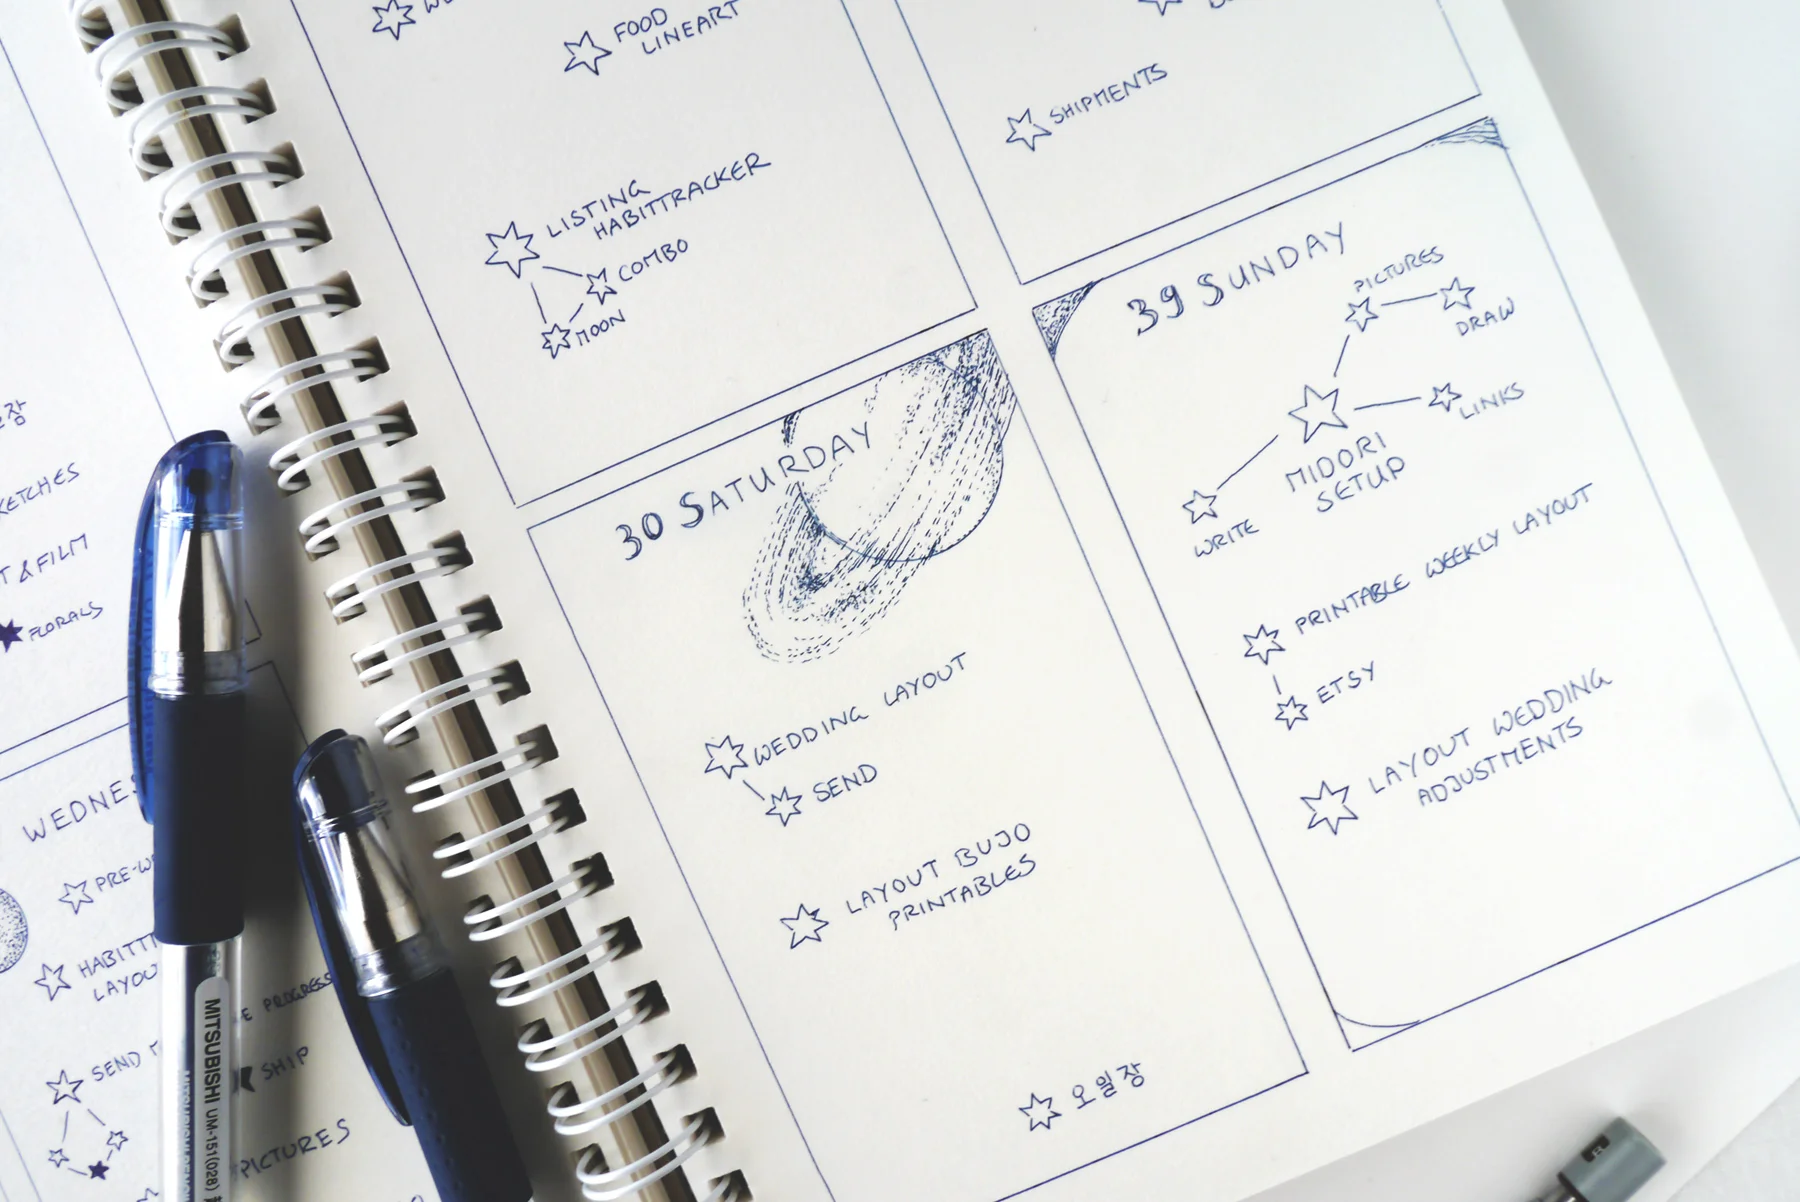 FOOD
LINEART
LISTING
HABITTRACKER
COMBO
MOON
SHIPMENTS
30 SATURDAY
WEDDING LAYOUT
SEND
LAYOUT BUJO
PRINTABLES
오일장
39 SUNDAY
PICTURES
DRAW
LINKS
MIDORI
SETUP
WRITE
PRINTABLE WEEKLY LAYOUT
ETSY
LAYOUT WEDDING
ADJUSTMENTS
& FILM
FLORALS
SEND
PROGRESS
SHIP
PICTURES
MITSUBISHI UM-151(028)